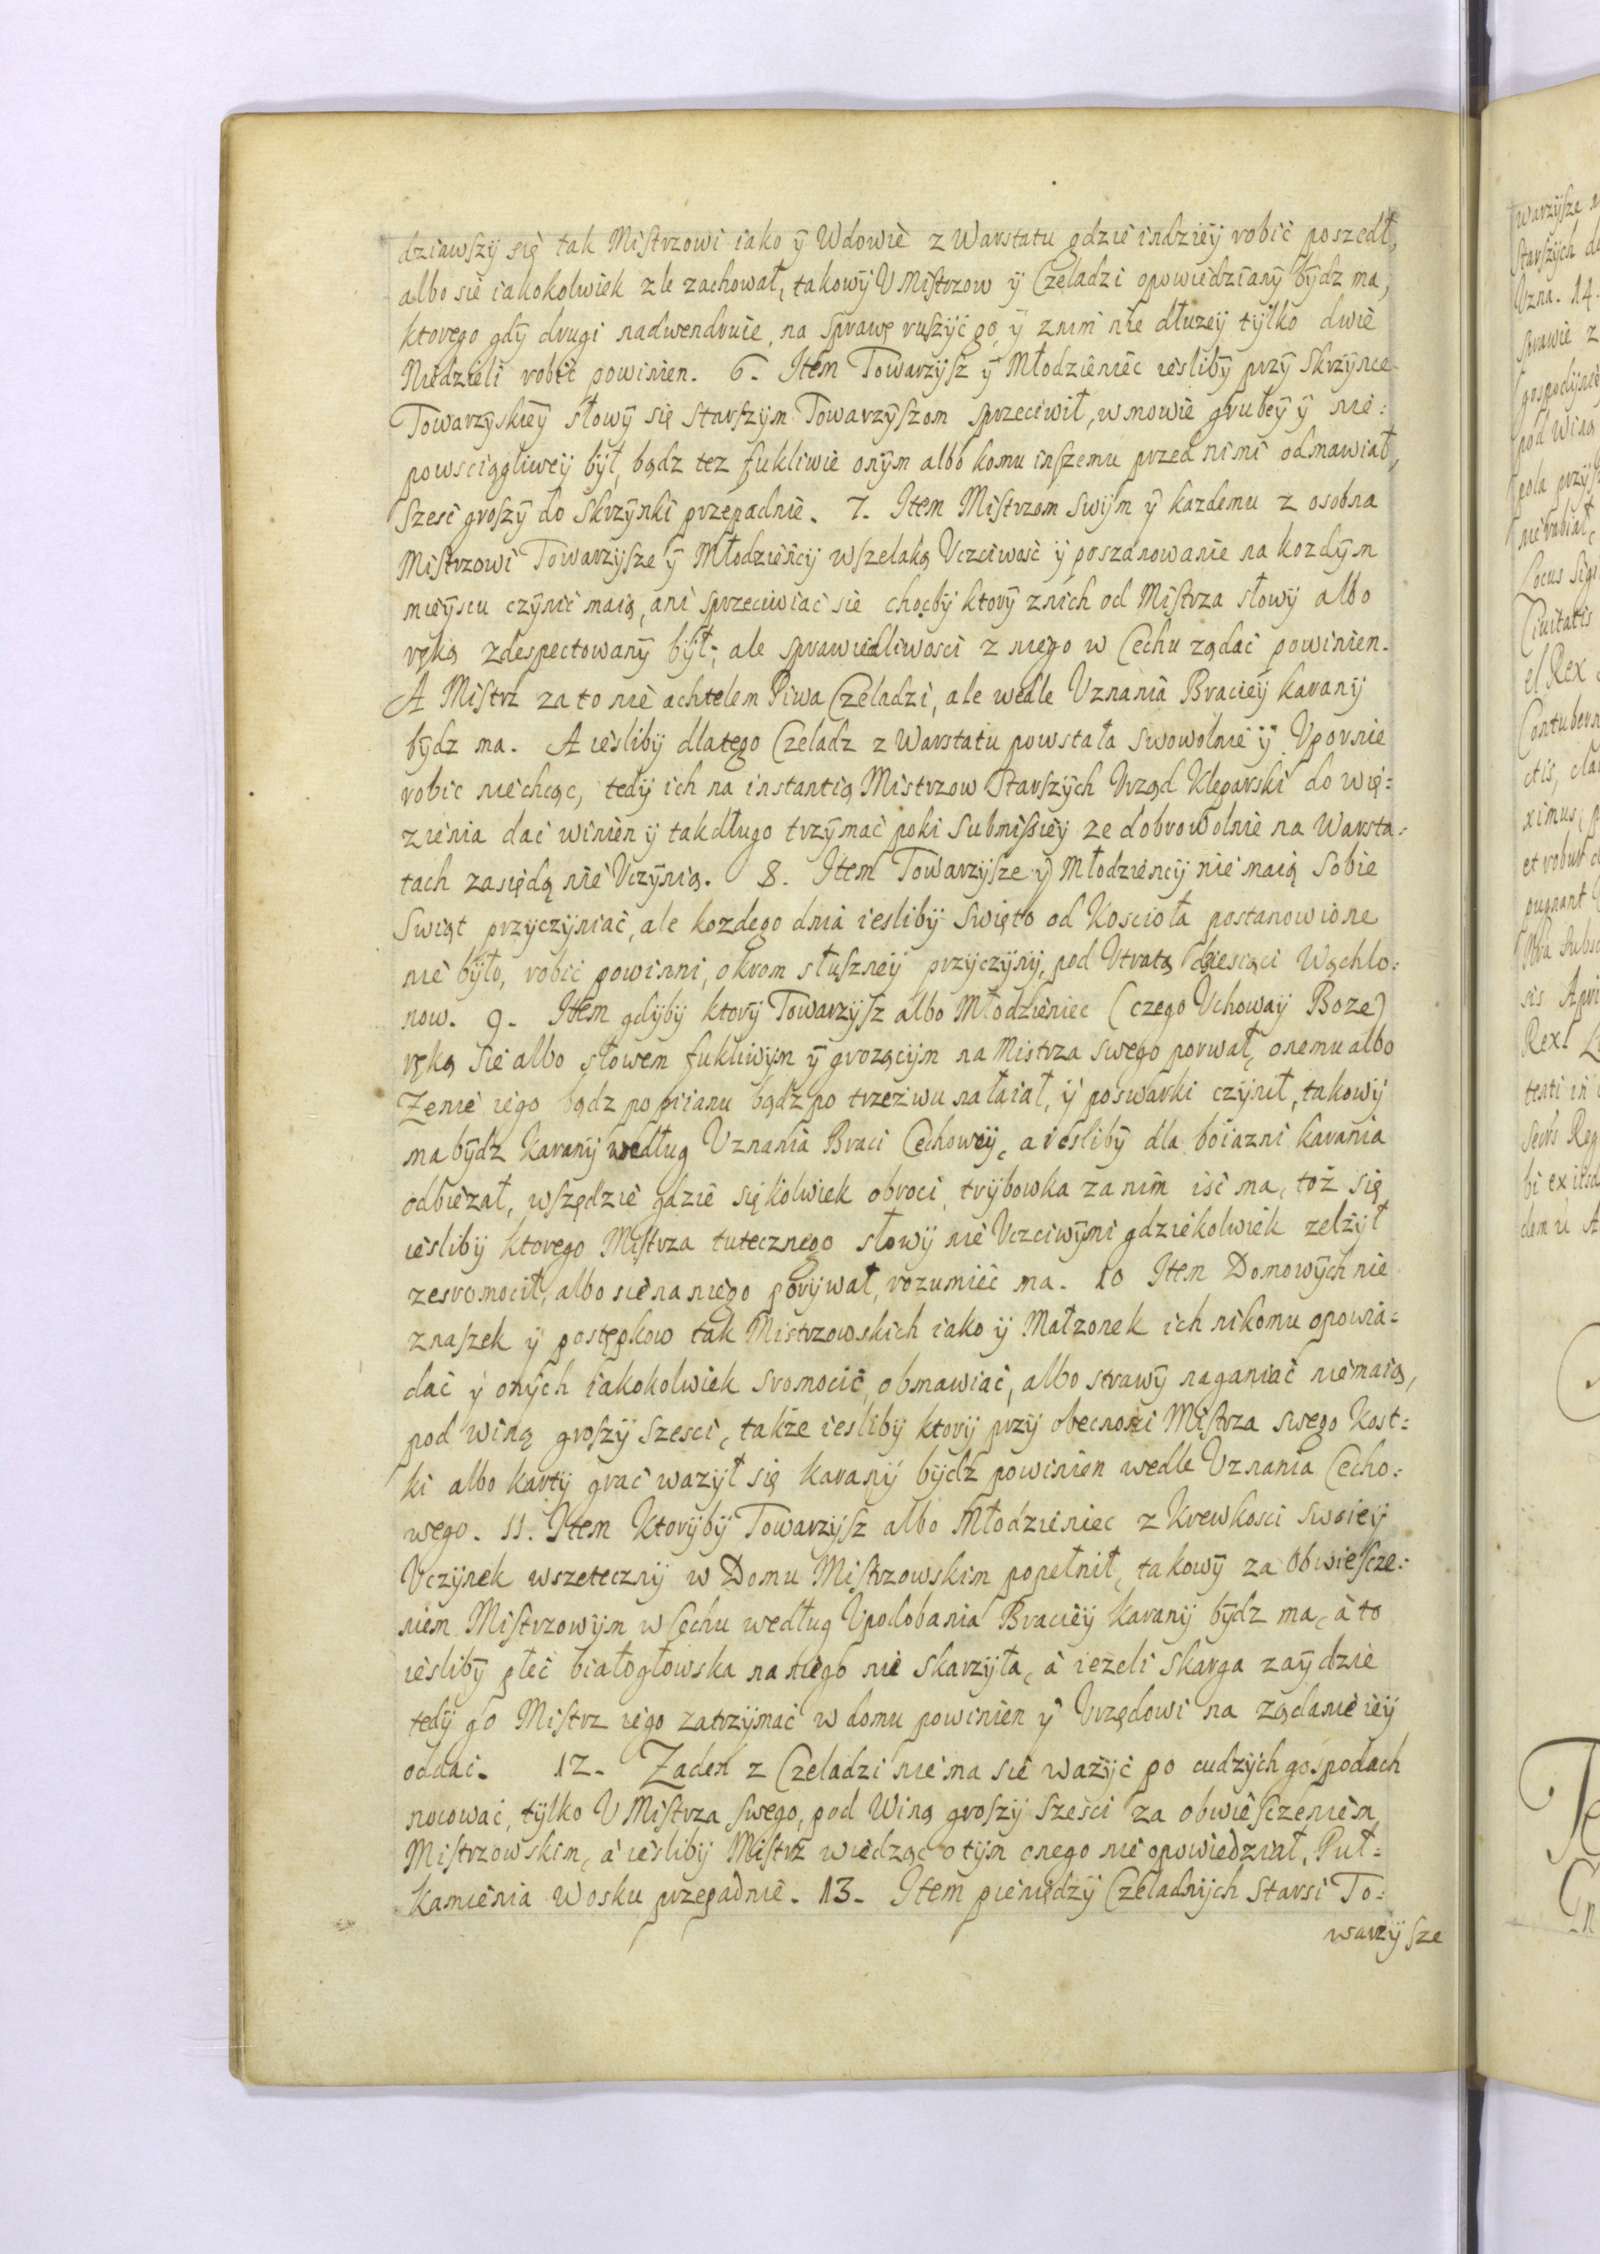 dziawszy się tak Mistrzowi iako ÿ Wdowie z Warstatu gdzie indzieÿ robić poszedł,
albo sie iakokolwiek zle zachował, takowÿ V Mistrzow ÿ Czeladzi opowiedzianÿ bÿdz ma,
ktorego gdÿ drugi nadwendruie, na sprawę ruszÿć go, ÿ znim nie dłuzeÿ tÿlko dwie
Niedzieli robić powinien. 6. Item Towarzÿsz ÿ Młodzieniec iesliby przÿ Skrzÿnce
Towarzÿskieÿ słowÿ się starszÿm Towarzÿszom sprzeciwił, w mowie grubeÿ ÿ nie:
powsciągliweÿ bÿł, bądz tez fukliwie onÿm albo komu inszemu przed nimi odmawiał,
szesc groszÿ do Skrzÿnki przepadnie. 7. Item Mistrzom swÿm ÿ kazdemu z osobna
Mistrzowi Towarzÿsze ÿ Młodziencÿ wszelaką Vczciwosć ÿ poszanowanie na kozdÿm
mieÿscu czÿnić maią, ani sprzeciwiać sie choćbÿ ktorÿ znich od Mistrza słowÿ albo
ręką zdespectowanÿ bÿł; ale sprawiedliwosci z niego w Cechu ządać powinien.
A Mistrz za to nie achtelem Piwa Czeladzi, ale wedle Vznania Bracieÿ karanÿ
bÿdz ma. A ieslibÿ dlatego Czeladz z Warstatu powstała swowolnie ÿ Vpornie
robic niechcąc, tedÿ ich na instantią Mistrzow Starszÿch Vrząd Kleparski do wię:
zienia dać winien ÿ takdługo trzÿmać poki submissieÿ ze dobrowolnie na Warsta:
tach zasiędą nie Vczÿnią. 8. Item Towarzÿsze ÿ Młodziencÿ nie maią sobie
Swiąt przÿczÿniać, ale kozdego dnia ieslibÿ Swięto od Koscioła postanowione
nie bÿło, robić powinni, okrom słuszneÿ przÿczÿnÿ, pod Vtratą dziesiąci Wąchlo:
now. 9. Item gdÿbÿ ktorÿ Towarzÿsz albo Młodzieniec (czego Vchowaÿ Boze)
ręką sie albo słowem fukliwÿm ÿ grozącÿm na Mistrza swego porwał, onemu albo
Zenie iego bądz popiianu bądz po trzezwu nałaiał, ÿ poswarki czÿnił, takowÿ
ma bÿdz karanÿ według Vznania Braci Cechoweÿ, a ieslibÿ dla boiazni karania
odbiezał, wszędzie gdzie siękolwiek obroci, trÿbowka za nim isć ma, toż się
ieslibÿ ktorego Mistrza tutecznego słowÿ nie Vczciwÿmi gdziekolwiek zelżÿł
zesromocił, albo sie na niego porÿwał, rozumieć ma. 10 Item Domowÿch nie
znaszek ÿ postępkow tak Mistrzowskich iako ÿ Małzonek ich nikomu opowia:
dać ÿ onÿch iakokolwiek sromocić, obmawiać, albo strawÿ naganiać niemaią,
pod winą groszÿ szesci, także ieslibÿ ktorÿ przÿ obecnosci Mistrza swego Kost:
ki albo kartÿ grać wazÿł się karanÿ bÿdz powinien wedle Vznania Cecho:
wego. 11. Item Ktorÿbÿ Towarzÿsz albo Młodzieniec z Krewkosci swoieÿ
Vczÿnek wszetecznÿ w Domu Mistrzowskim popełnił, takowÿ za Obwiescze:
niem Mistrzowÿm w Cechu według Vpodobania Bracieÿ karanÿ bÿdz ma, à to
ieslibÿ płeć białogłowska na niego nie skarzÿła, à ieżeli Skarga zaÿdzie
tedÿ go Mistrz iego zatrzÿmać w domu powinien ÿ Vrzędowi na ządanie ieÿ
oddać. 12. Zaden z Czeladzi nie ma sie ważÿć po cudzÿch gospodach
nocować, tÿlko V Mistrza swego, pod Winą groszÿ szesci za obwiesczeniem
Mistrzowskim, à ieslibÿ Mistrz wiedząc o tÿm onego nie opowiedział, Puł:
kamienia Wosku przepadnie. 13. Item pieniędzÿ Czeladnÿch starsi To:
warzÿsze